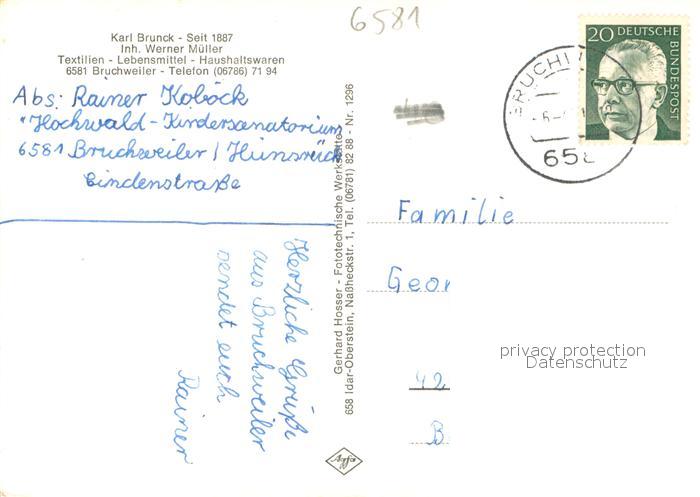 6581
Karl Brunck - Seit 1887
Inh. Werner Müller
Textilien - Lebensmittel - Haushaltswaren
6581 Bruchweiler - Telefon (06786) 71 94
Abs: Rainer Koböck
"Hochwald-Kindersanatorium
6581 Bruchweiler / Hunsrück
Lindenstraße
Herzliche Grüße
aus Bruchweiler
sendet euch
Rainer
Gerhard Hosser - Fototechnische Werkstätte
658 Idar-Oberstein, Naßheckstr. 1, Tel. (06781) 82 88 - Nr. 1296
Agfa
20 DEUTSCHE BUNDESPOST
BRUCHW
658
Familie
Geor
42
B
privacy protection
Datenschutz